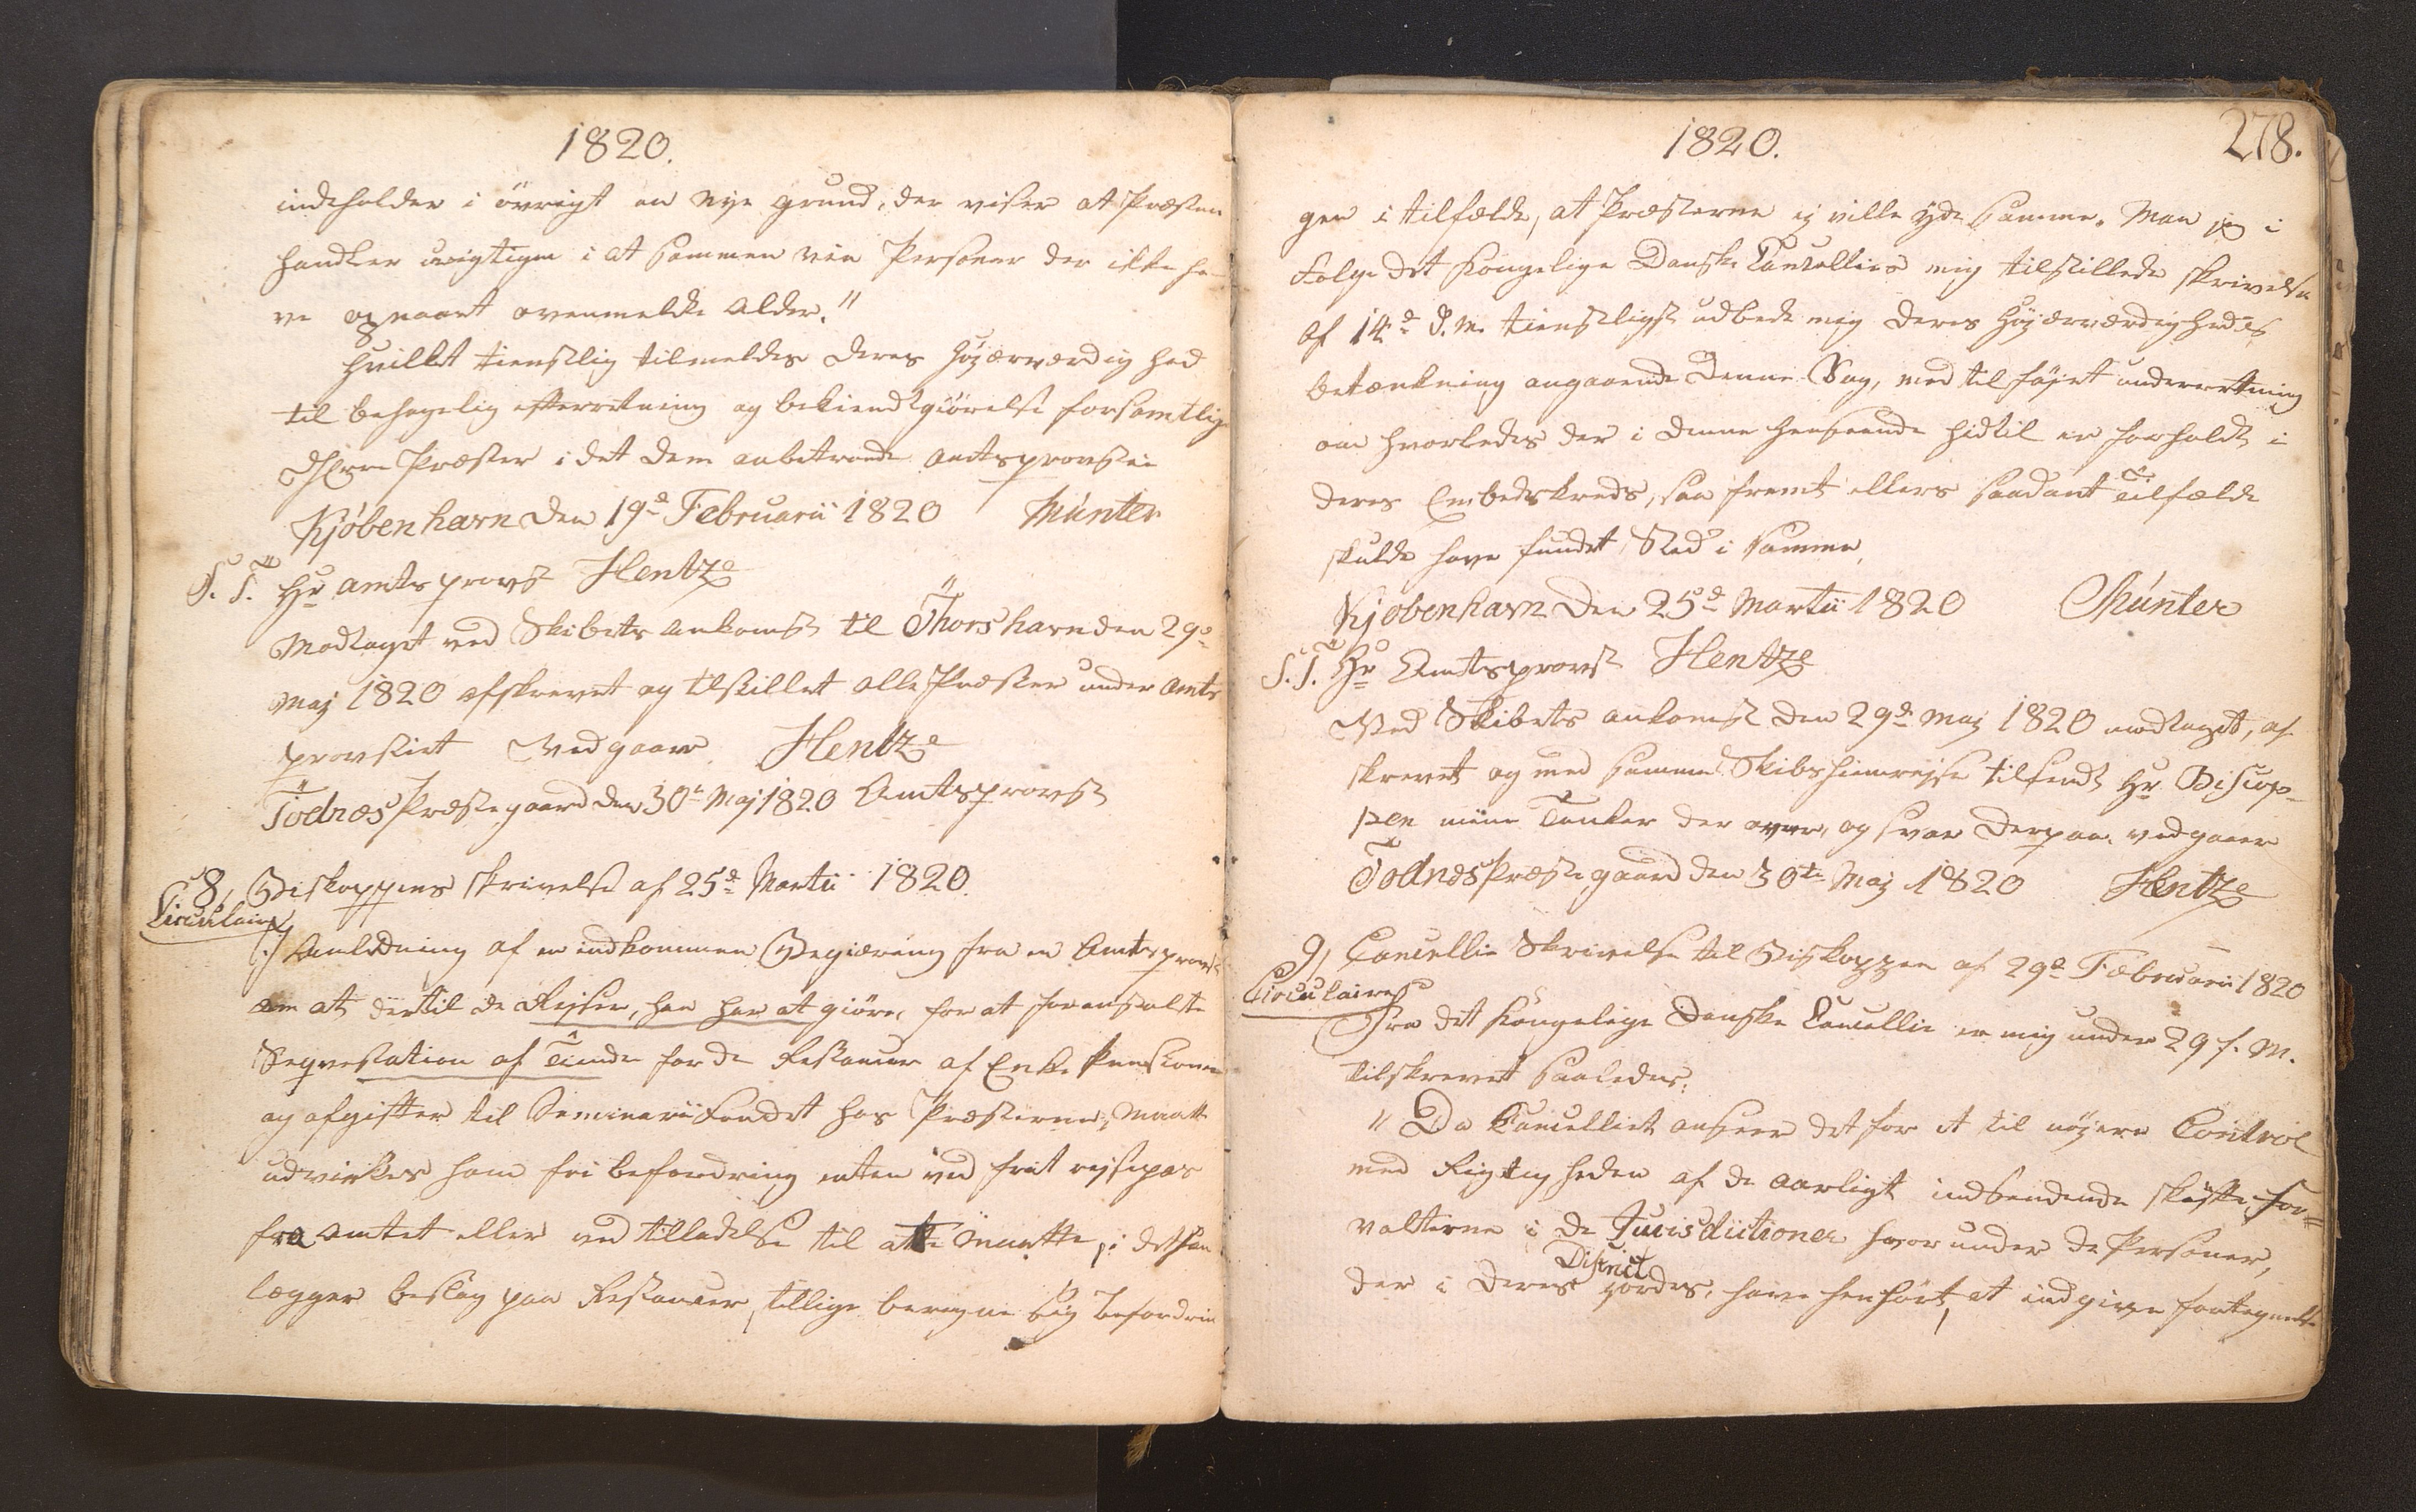 1820.
indeholder i övrigt en nye grund, der viser at Præsten
handler urigtigen i at sammen vie Personer der ikke ha-
ve opnaaet ovenmeldte Alder."
hvilket tienstlig tilmeldes Deres Høiærværdighed
til behagelig efterretning og bekiendtgiörelse for samtlige
DHerrer Præster i det Dem anbetroede Amtsprovstie
Kjøbenhavn den 19de Februarii 1820 Münter
S. T. Hr Amtsprovst Hentze
Modtaget ved Skibets ankomst til Thorshavn den 29de
Maj 1820 afskrevet og tilstillet alle Præster under Amts
provstiet Vedgaaer Hentze
Todnæs Præstegaard den 30te Maj 1820 Amtsprovst
8, Biskoppens skrivelse af 25de Martii 1820.
Circulaire
I Anledning af en indkommen Begiæring fra en Amtsprovst
om at der til de Rejser, han har at giöre, for at foranstalte
Seqvestation af Tiende for de Restancer af Enke Pensioner
og afgifter til Seminarii Fondet hos Præsterne, maatte
udvirkes ham fri befordring enten ved frit rejsepas
fra Amtet eller ved tilladelse til at maatte, i det han
lægger beslag paa Restancer, tillige beregne sig befordrin
1820.
278.
gen i tilfælde, at Præsterne ej ville yde samme. Maa jeg i
Følge det kongelige Danske Cancellies mig tilstillede skrivelse
af 14de d. M. tienstligst udbede mig Deres Høiærværdigheds
betænkning angaaende denne Sag, med tilføjet underretning
om hvorledes der i denne henseende hidtil er forholdt i
deres Embedskreds, saa fremt ellers saadant Tilfælde
skulde have fundet Sted i samme.
Kjøbenhavn den 25de Martii 1820 Münter
S. T. Hr Amtsprovst Hentze
Ved Skibets ankomst den 29de Maj 1820 modtaget, af-
skrevet og med samme Skibs hiemrejse tilsendt Hr Biscop-
pen mine Tanker der over, og svar derpaa. vedgaaer
Todnæs Præstegaard den 30te Maj 1820 Hentze
9, Cancellie Skrivelse til Biskoppen af 29de Februarii 1820
Circulaire
Fra det kongelige Danske Cancellie er mig under 29 f. M.
tilskrevet saaledes:
" Da Cancelliet anseer det for et til nøjere Control
med Rigtigheden af de aarligt indsendende skifte for=
valterne i de Jurisdictioner hvor under de Personer,
der i Deres District jordes, have henhört, at indgive fortegnelse